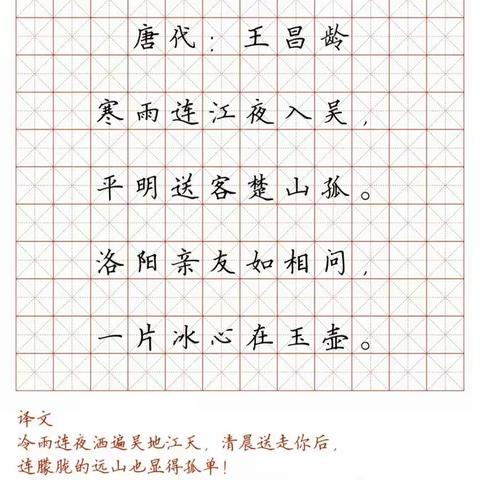 唐代：王昌龄
寒雨连江夜入吴，
平明送客楚山孤。
洛阳亲友如相问，
一片冰心在玉壶。
译文
冷雨连夜洒遍吴地江天，清晨送走你后，
连朦胧的远山也显得孤单！